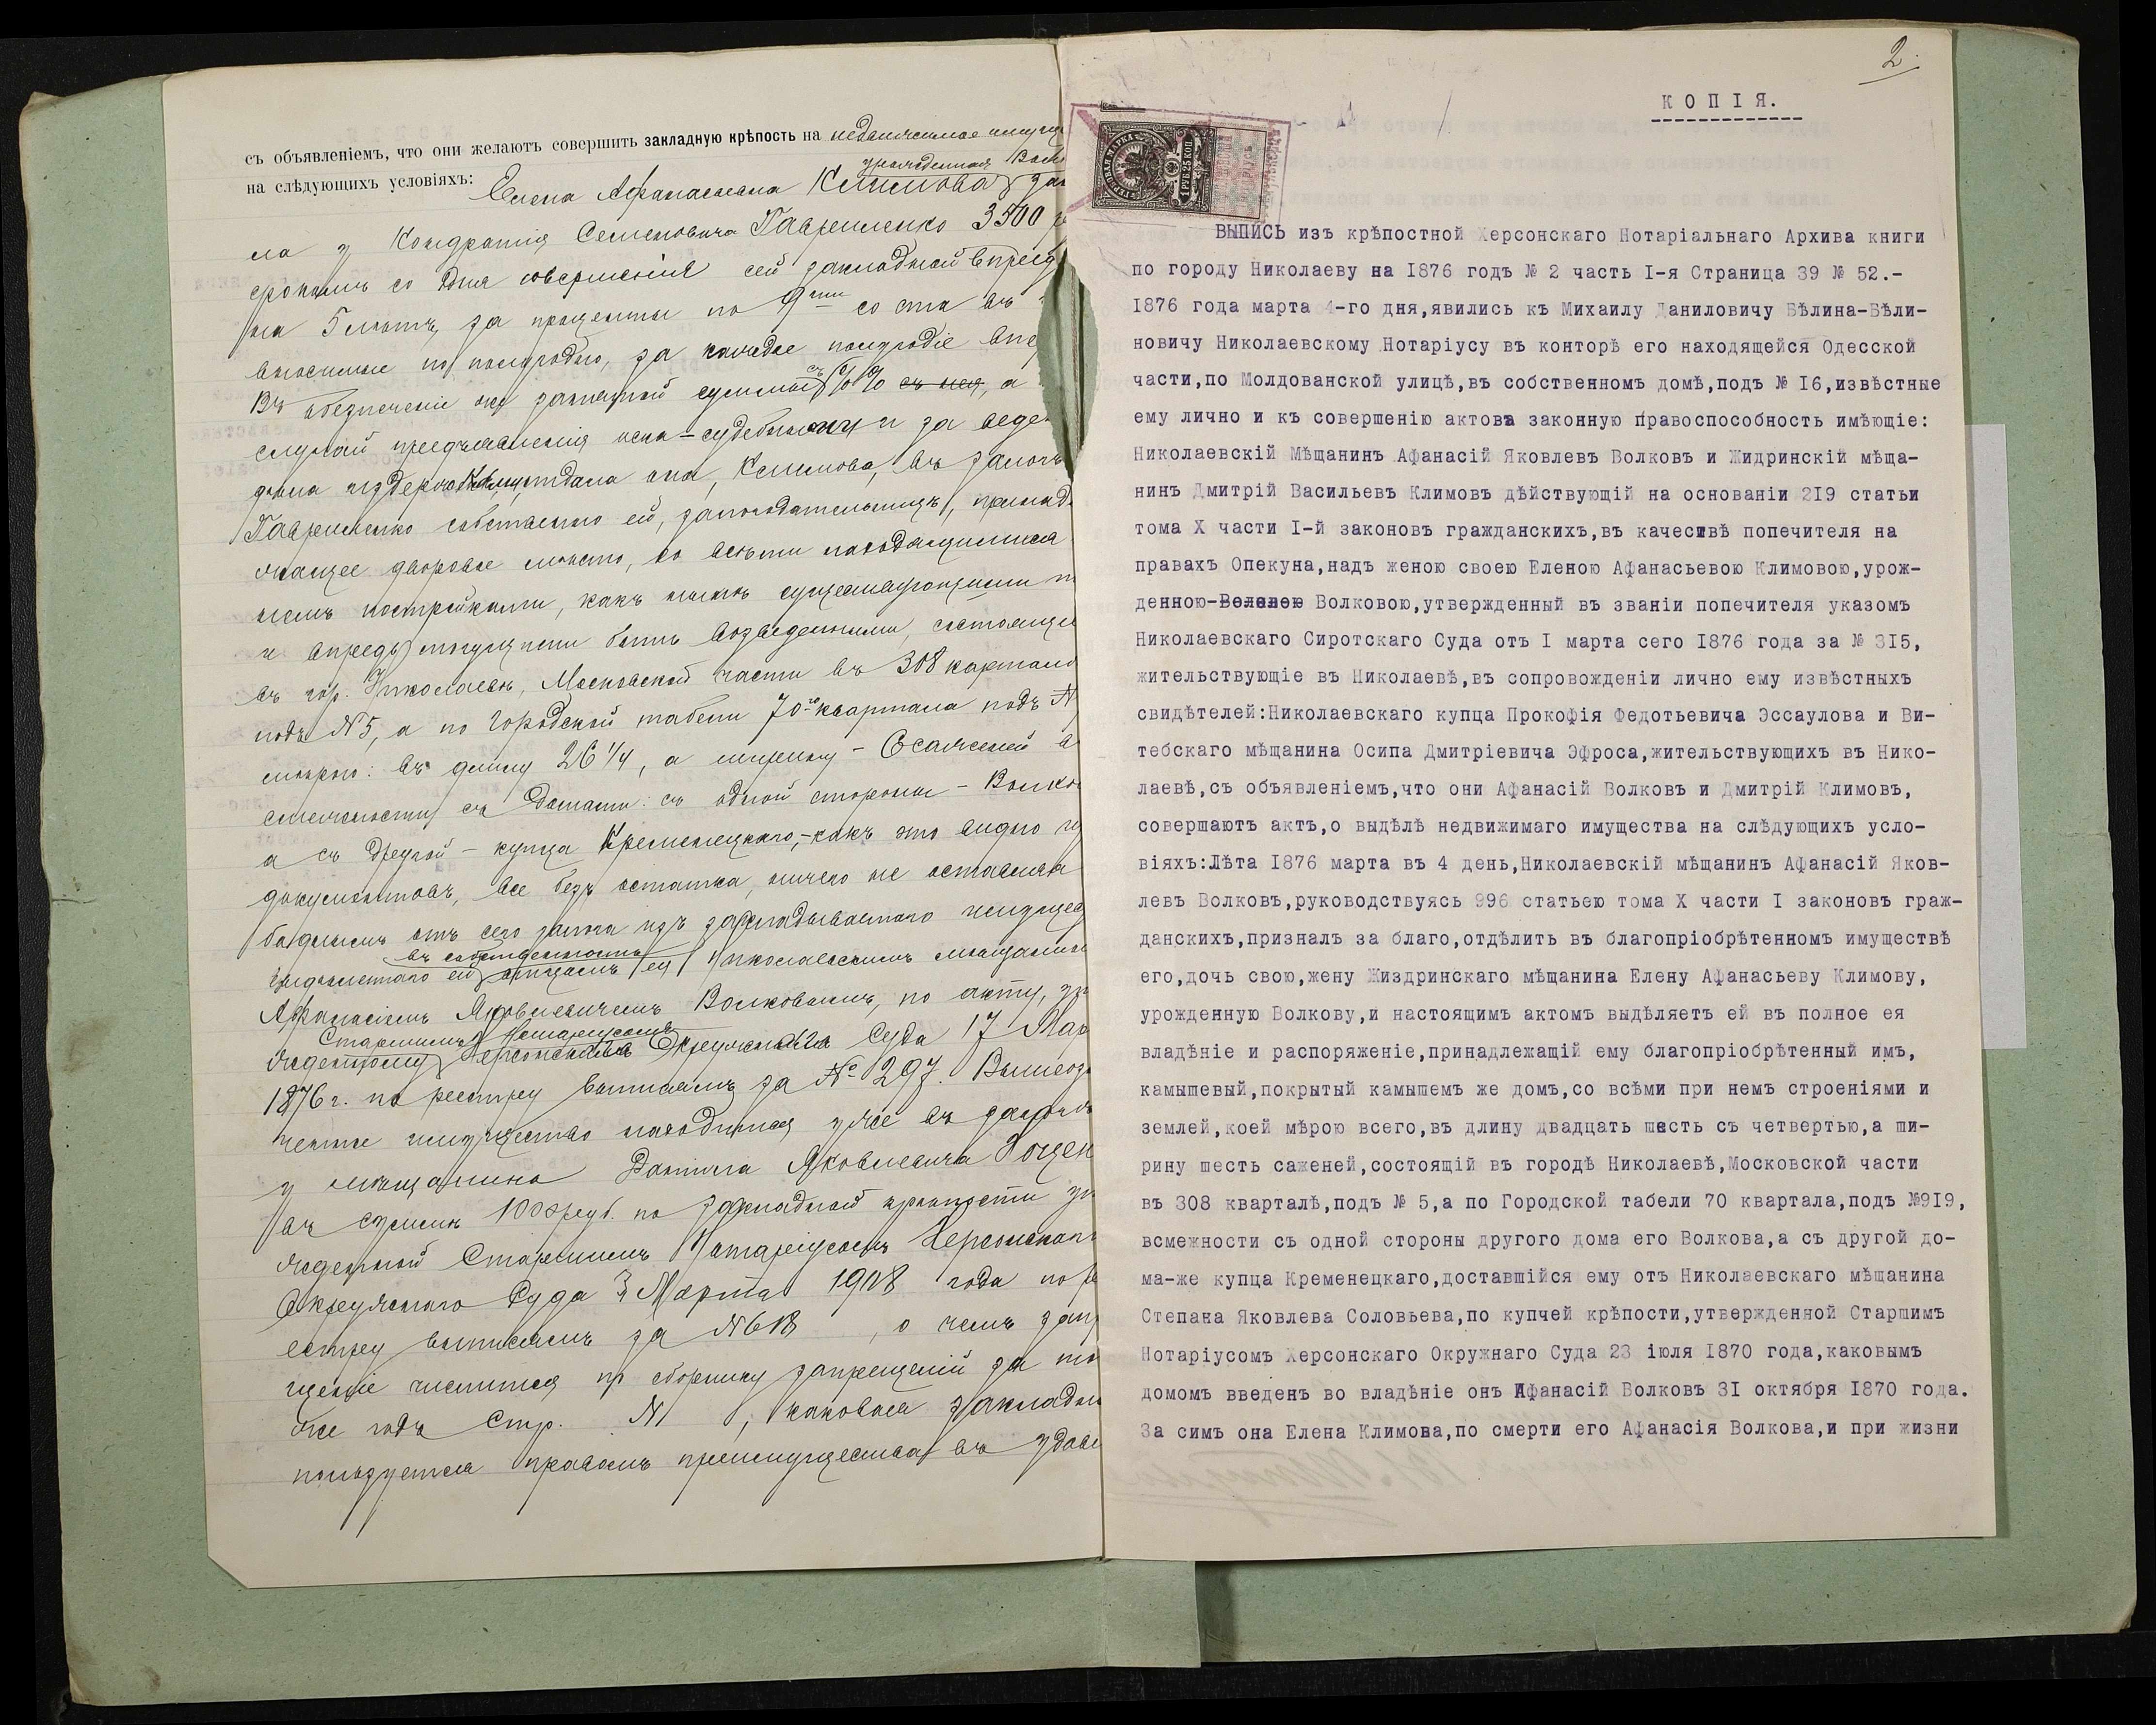 съ объявленіемъ, что они желаютъ совершить закладную крѣпость на недвижимое
на слѣдующихъ условіяхъ: Елена Афанасьевна Климова, урожденная
ла у Кондратія Семеновича Гавриленко 3500
срокомъ со дня совершенія сей закладной впредь
на 5 лѣтъ, за проценты по 9ти со ста въ
вносимые по полугодно, за каждое полугодіе
Въ обезпеченіе занятой суммы съ %% съ нея, а
случай предъявленія иска – судебныхъ и за
издержекъ, отдала она, Климова, въ залогъ
Гавриленко собственно ей, залогодательницѣ,
жащее дворовое мѣсто, со всѣми находящимися
немъ постройками, какъ нынѣ существующими
и впредь могущими быть возведенными,
въ гор. Николаевѣ, Московской части въ 308
подъ № 5, а по Городской табели 70го квартала подъ №
мѣрою: въ длину 26 1/4, а ширину – 6 саженей
смежности съ домами: съ одной стороны –
а съ другой – купца Кременецкаго, – какъ это видно
документовъ, все безъ остатка, ничего не оставляя
отъ сего залога изъ закладываемаго
ей въ собственность отцомъ ея Николаевскимъ
Афанасіемъ Яковлевичемъ Волковымъ, по акту,
Старшимъ Нотаріусомъ Херсонскаго Окружнаго Суда 17
1876 г. по реестру выписямъ за № 297.
имущество находится уже въ
у мѣщанина Даніила Яковлевича
въ суммѣ 1000 руб. по закладной крѣпости
жденной Старшимъ Нотаріусомъ
Окружнаго Суда 3 Марта 1908 года по
естру выписямъ за № 618, о чемъ
щеніе числится по сборнику запрещеній за
же годъ Стр. №, каковая
пользуется правомъ преимущества въ
2.
КОПІЯ.
1 РУБ. 25 КОП.
ВЫПИСЬ изъ крѣпостной Херсонскаго Нотаріальнаго Архива книги
по городу Николаеву на 1876 годъ № 2 часть I-я Страница 39 № 52.-
1876 года марта 4-го дня,явились къ Михаилу Даниловичу Бѣлина-Бѣли-
новичу Николаевскому Нотаріусу въ конторѣ его находящейся Одесской
части,по Молдованской улицѣ,въ собственномъ домѣ,подъ № 16,извѣстные
ему лично и къ совершенію актова законную правоспособность имѣющіе:
Николаевскій Мѣщанинъ Афанасій Яковлевъ Волковъ и Жидринскій мѣща-
нинъ Дмитрій Васильевъ Климовъ дѣйствующій на основаніи 219 статьи
тома X части I-й законовъ гражданскихъ,въ качествѣ попечителя на
правахъ Опекуна,надъ женою своею Еленою Афанасьевою Климовою,урож-
денною- Волковою,утвержденный въ званіи попечителя указомъ
Николаевскаго Сиротскаго Суда отъ I марта сего 1876 года за № 315,
жительствующіе въ Николаевѣ,въ сопровожденіи лично ему извѣстныхъ
свидѣтелей:Николаевскаго купца Прокофія Федотьевича Эссаулова и Ви-
тебскаго мѣщанина Осипа Дмитріевича Эфроса,жительствующихъ въ Нико-
лаевѣ,съ объявленіемъ,что они Афанасій Волковъ и Дмитрій Климовъ,
совершаютъ актъ,о выдѣлѣ недвижимаго имущества на слѣдующихъ усло-
віяхъ:Лѣта 1876 марта въ 4 день,Николаевскій мѣщанинъ Афанасій Яков-
левъ Волковъ,руководствуясь 996 статьею тома X части I законовъ граж-
данскихъ,призналъ за благо,отдѣлить въ благопріобрѣтенномъ имуществѣ
его,дочь свою,жену Жиздринскаго мѣщанина Елену Афанасьеву Климову,
урожденную Волкову,и настоящимъ актомъ выдѣляетъ ей въ полное ея
владѣніе и распоряженіе,принадлежащій ему благопріобрѣтенный имъ,
камышевый,покрытый камышемъ же домъ,со всѣми при немъ строеніями и
землей,коей мѣрою всего,въ длину двадцать шесть съ четвертью,а ши-
рину шесть саженей,состоящій въ городѣ Николаевѣ,Московской части
въ 308 кварталѣ,подъ № 5,а по Городской табели 70 квартала,подъ №919,
всмежности съ одной стороны другого дома его Волкова,а съ другой до-
ма-же купца Кременецкаго,доставшійся ему отъ Николаевскаго мѣщанина
Степана Яковлева Соловьева,по купчей крѣпости,утвержденной Старшимъ
Нотаріусомъ Херсонскаго Окружнаго Суда 23 іюля 1870 года,каковымъ
домомъ введенъ во владѣніе онъ Афанасій Волковъ 31 октября 1870 года.
За симъ она Елена Климова,по смерти его Афанасія Волкова,и при жизни